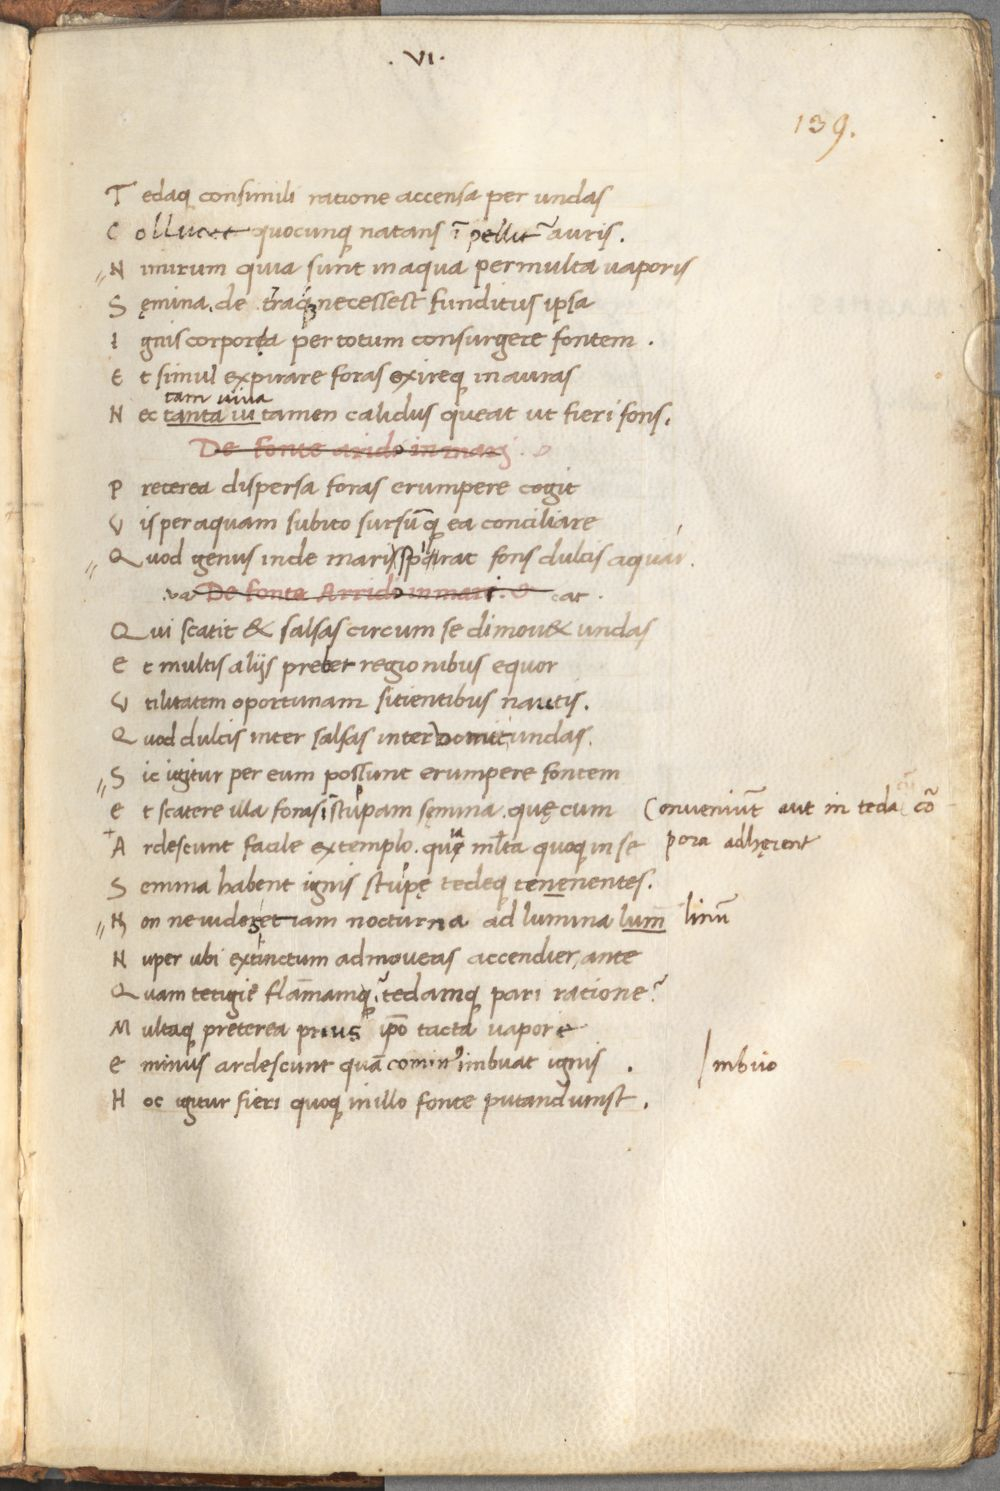 . VI .
139.
T edaq consimili ratione accensa per undas
C ollucet quocunq natans ī pellit auris.
N imirum quia sunt in aqua permulta uaporis
S ęmina. de terraq necessest funditus ipsa
I gnis corpora per totum consurgere fontem .
E t simul expirare foras exireq in auras
tam uiua
N ec tanta ui tamen calidus queat ut fieri fons.
De fonte arido in mari .
P reterea dispersa foras erumpere cogit
V is per aquam subito sursūq ea conciliare
Q uod genus inde maris spirat fons dulcis aquai.
De fonte Arrido in mari. cat .
Q ui scatit & salsas circum se dimouet undas
E t multis alijs prebet regionibus equor
V tilitatem oportunam sitientibus nautis.
Q uod dulcis inter salsas inter uomit undas.
S ic igitur per eum possunt erumpere fontem
E t scatere illa foras ī stupam sęmina . quę cum Conueniūt aut in teda cō
A rdescunt facile extemplo. quia mlta quoq in se pora adhęrent
S emina habent ignis stupę tedeq tenenentes.
N on ne uides etiam nocturna ad lumina lum̄ linū
N uper ubi extinctum admoueas accendier, ante
Q uam tetigit flāmamq, tedamq pari ratione?
M ultaq preterea prius ipō tacta vapore
E minus ardescunt quā comin' imbuat ignis . Imbuo
H oc igitur fieri quoq in illo fonte putandumst .